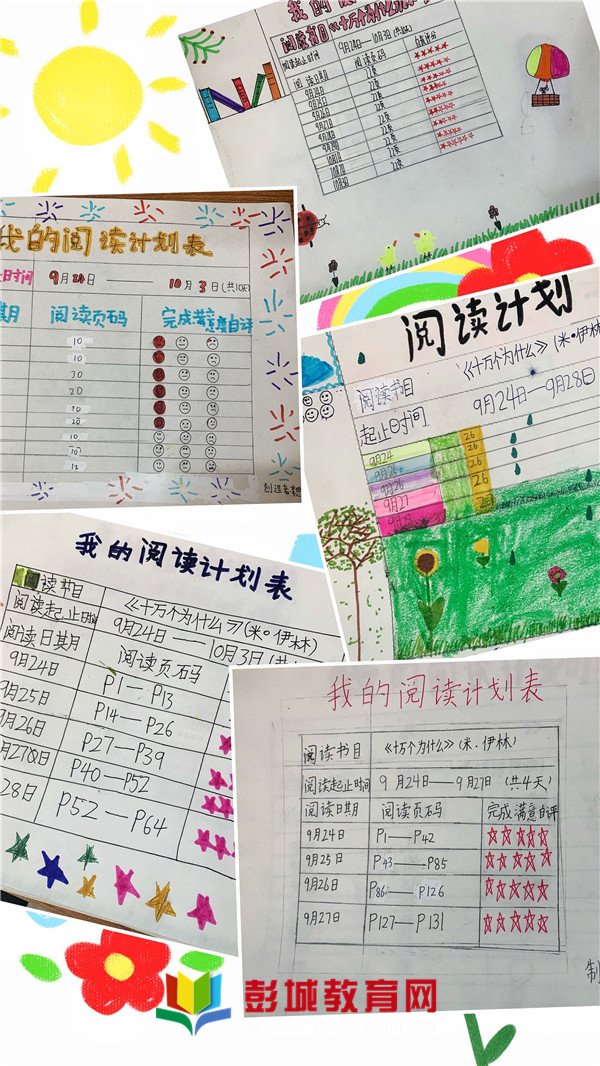 阅读书目《十万个为什么》
阅读起止时间 9月24日—10月3日
阅读日期 阅读页码 自我评分
9月24日 22页
9月25日 22页
9月26日 22页
9月27日 22页
9月28日 22页
我的阅读计划表
9月24日 —— 10月3日(共10天)
阅读页码 完成满意度自评
10
10
30
20
10
20
10
10
12
阅读计划
阅读书目 《十万个为什么》(米·伊林
起止时间 9月24日—9月28日
9月24 26
9月25 26
9月26 26
9月27 26
我的阅读计划表
阅读书目 《十万个为什么》(米·伊林)
阅读起止日时间 9月24日——10月3日(共
阅读日期月 阅读页码
9月24日 P1—P13
9月25日 P14—P26
9月26日 P27—P39
月27日 P40—P52
28日 P52—P64
我的阅读计划表
阅读书目 《十万个为什么》(米·伊林)
阅读起止时间 9月24日——9月27日 (共4天)
阅读日期 阅读页码 完成满意自评
9月24日 P1——P42
9月25日 P43——P85
9月26日 P86——P126
9月27日 P127—P131
制
彭城教育网